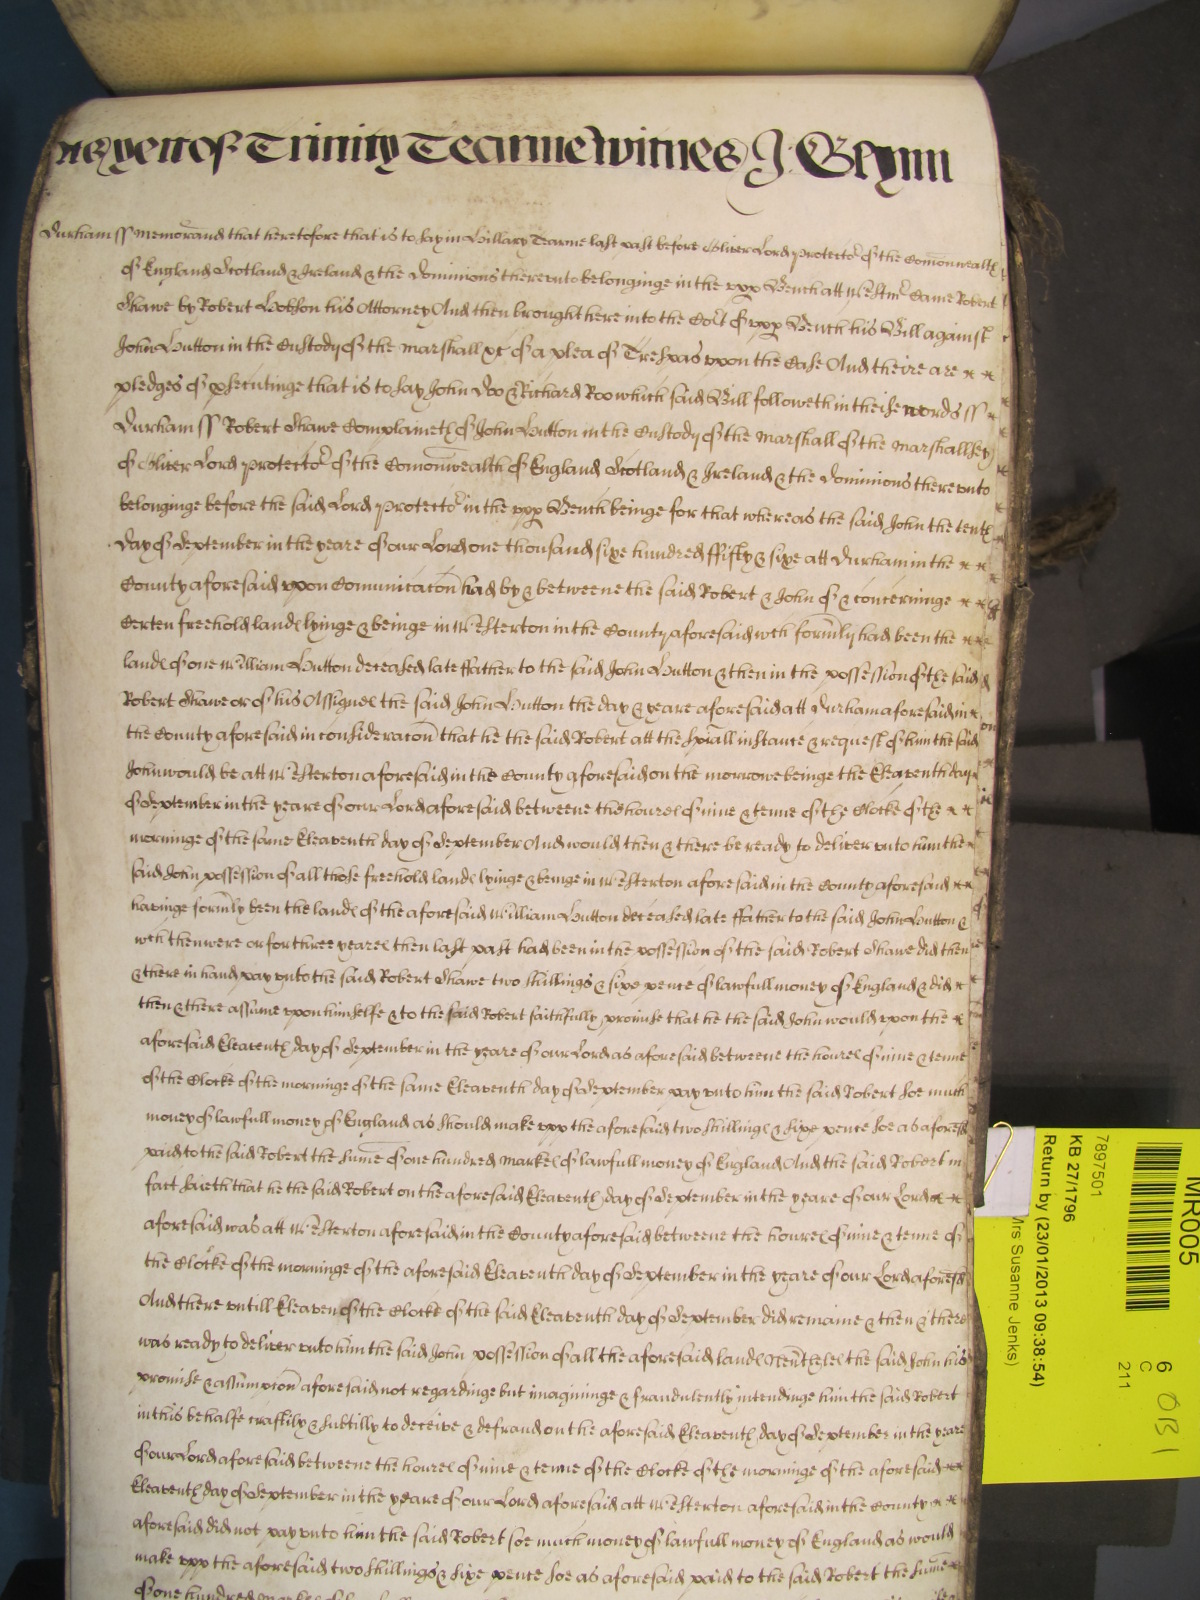 yett of Trinity Tearme witnes J: Glynn
Durham ss Memorand that heretofore that is to say in Hillary Tearme last past before Oliver Lord Protector of the Comonwealth
of England Scotland & Ireland & the Dominions thereunto belonginge in the upp Bench att Westmr Came Robert
Shawe by Robert Hobson his Attorney And then brought here into the Cort of upp Bench his Bill against
John Hutton in the Custody of the Marshall &c of a plea of Trespas upon the Case And theire are
pledges of psecutinge that is to say John Doo & Richard Roo which said Bill followeth in theise words ss
Durham ss Robert Shawe Complaineth of John Hutton in the Custody of the Marshall of the Marshallsey
of Oliver Lord Protector of the Comonwealth of England Scotland & Ireland & the Dominions thereunto
belonginge before the said Lord Protector in the upp Bench beinge for that whereas the said John the tenth
day of September in the yeare of our Lord one thousand sixe hundred ffifty & sixe att Durham in the
County aforesaid upon Comunicacon had by & betweene the said Robert & John of & concerninge
Certen freehold landes lyinge & beinge in Westerton in the County aforesaid wch formly had been the
landes of one William Hutton deceased late ffather to the said John Hutton & then in the possession of the said
Robert Shawe or of his Assignes the said John Hutton the day & yeare aforesaid att Durham aforesaid in
the County aforesaid in consideracon that he the said Robert att the spiall instance & request of him the said
John would be att Westerton aforesaid in the County aforesaid on the morrowe beinge the Eleaventh day
of September in the yeare of our Lord aforesaid betweene the houres of nine & tenne of the Clocke of the
morninge of the same Eleaventh day of September And would then & there be ready to deliver unto him the
said John possession of all those freehold landes lyinge & beinge in Westerton aforesaid in the County aforesaid
havinge formly been the landes of the aforesaid William Hutton deceased late ffather to the said John Hutton &
wch then were or for three yeares then last past had been in the possession of the said Robert Shawe did then
& there in hand pay unto the said Robert Shawe two shillings & sixe pence of lawfull money of England & did
then & there assume upon himselfe & to the said Robert faithfully promise that he the said John would upon the
aforesaid Eleaventh day of September in the yeare of our Lord as aforesaid betweene the houres of nine & tenne
of the Clocke of the morninge of the same Eleaventh day of September pay unto him the said Robert soe much
money of lawfull money of England as should make upp the aforesaid two shillinges & sixe pence soe as aforesd
paid to the said Robert the sume of one hundred markes of lawfull money of England And the said Robert in
fact saieth that he the said Robert on the aforesaid Eleaventh day of September in the yeare of our Lord
aforesaid was att Westerton aforesaid in the County aforesaid betweene the houres of nine & tenne of
the Clocke of the morninge of the aforesaid Eleaventh day of September in the yeare of our Lord aforesd
And there untill Eleaven of the Clocke of the said Eleaventh day of September did remaine & then & there
was ready to deliver unto him the said John possession of all the aforesaid landes Nevtheles the said John his
promise & assumpcon aforesaid not regardinge but imagininge & fraudulently intendinge him the said Robert
in this behalfe craftily & subtilly to deceive & defraud on the aforesaid Eleaventh day of September in the yeare
of our Lord aforesaid betweene the houres of nine & tenne of the Clocke of the morninge of the aforesaid
Eleaventh day of September in the yeare of our Lord aforesaid att Westerton aforesaid in the County
aforesaid did not pay unto him the said Robert soe much money of lawfull money of England as would
make upp the aforesaid two shillings & sixe pence soe as aforesaid paid to the said Robert the sume
of one hundred markes
MR005
6
C
211
7897501
KB 27/1796
Return by (23/01/2013 09:38:54)
Mrs Susanne Jenks)